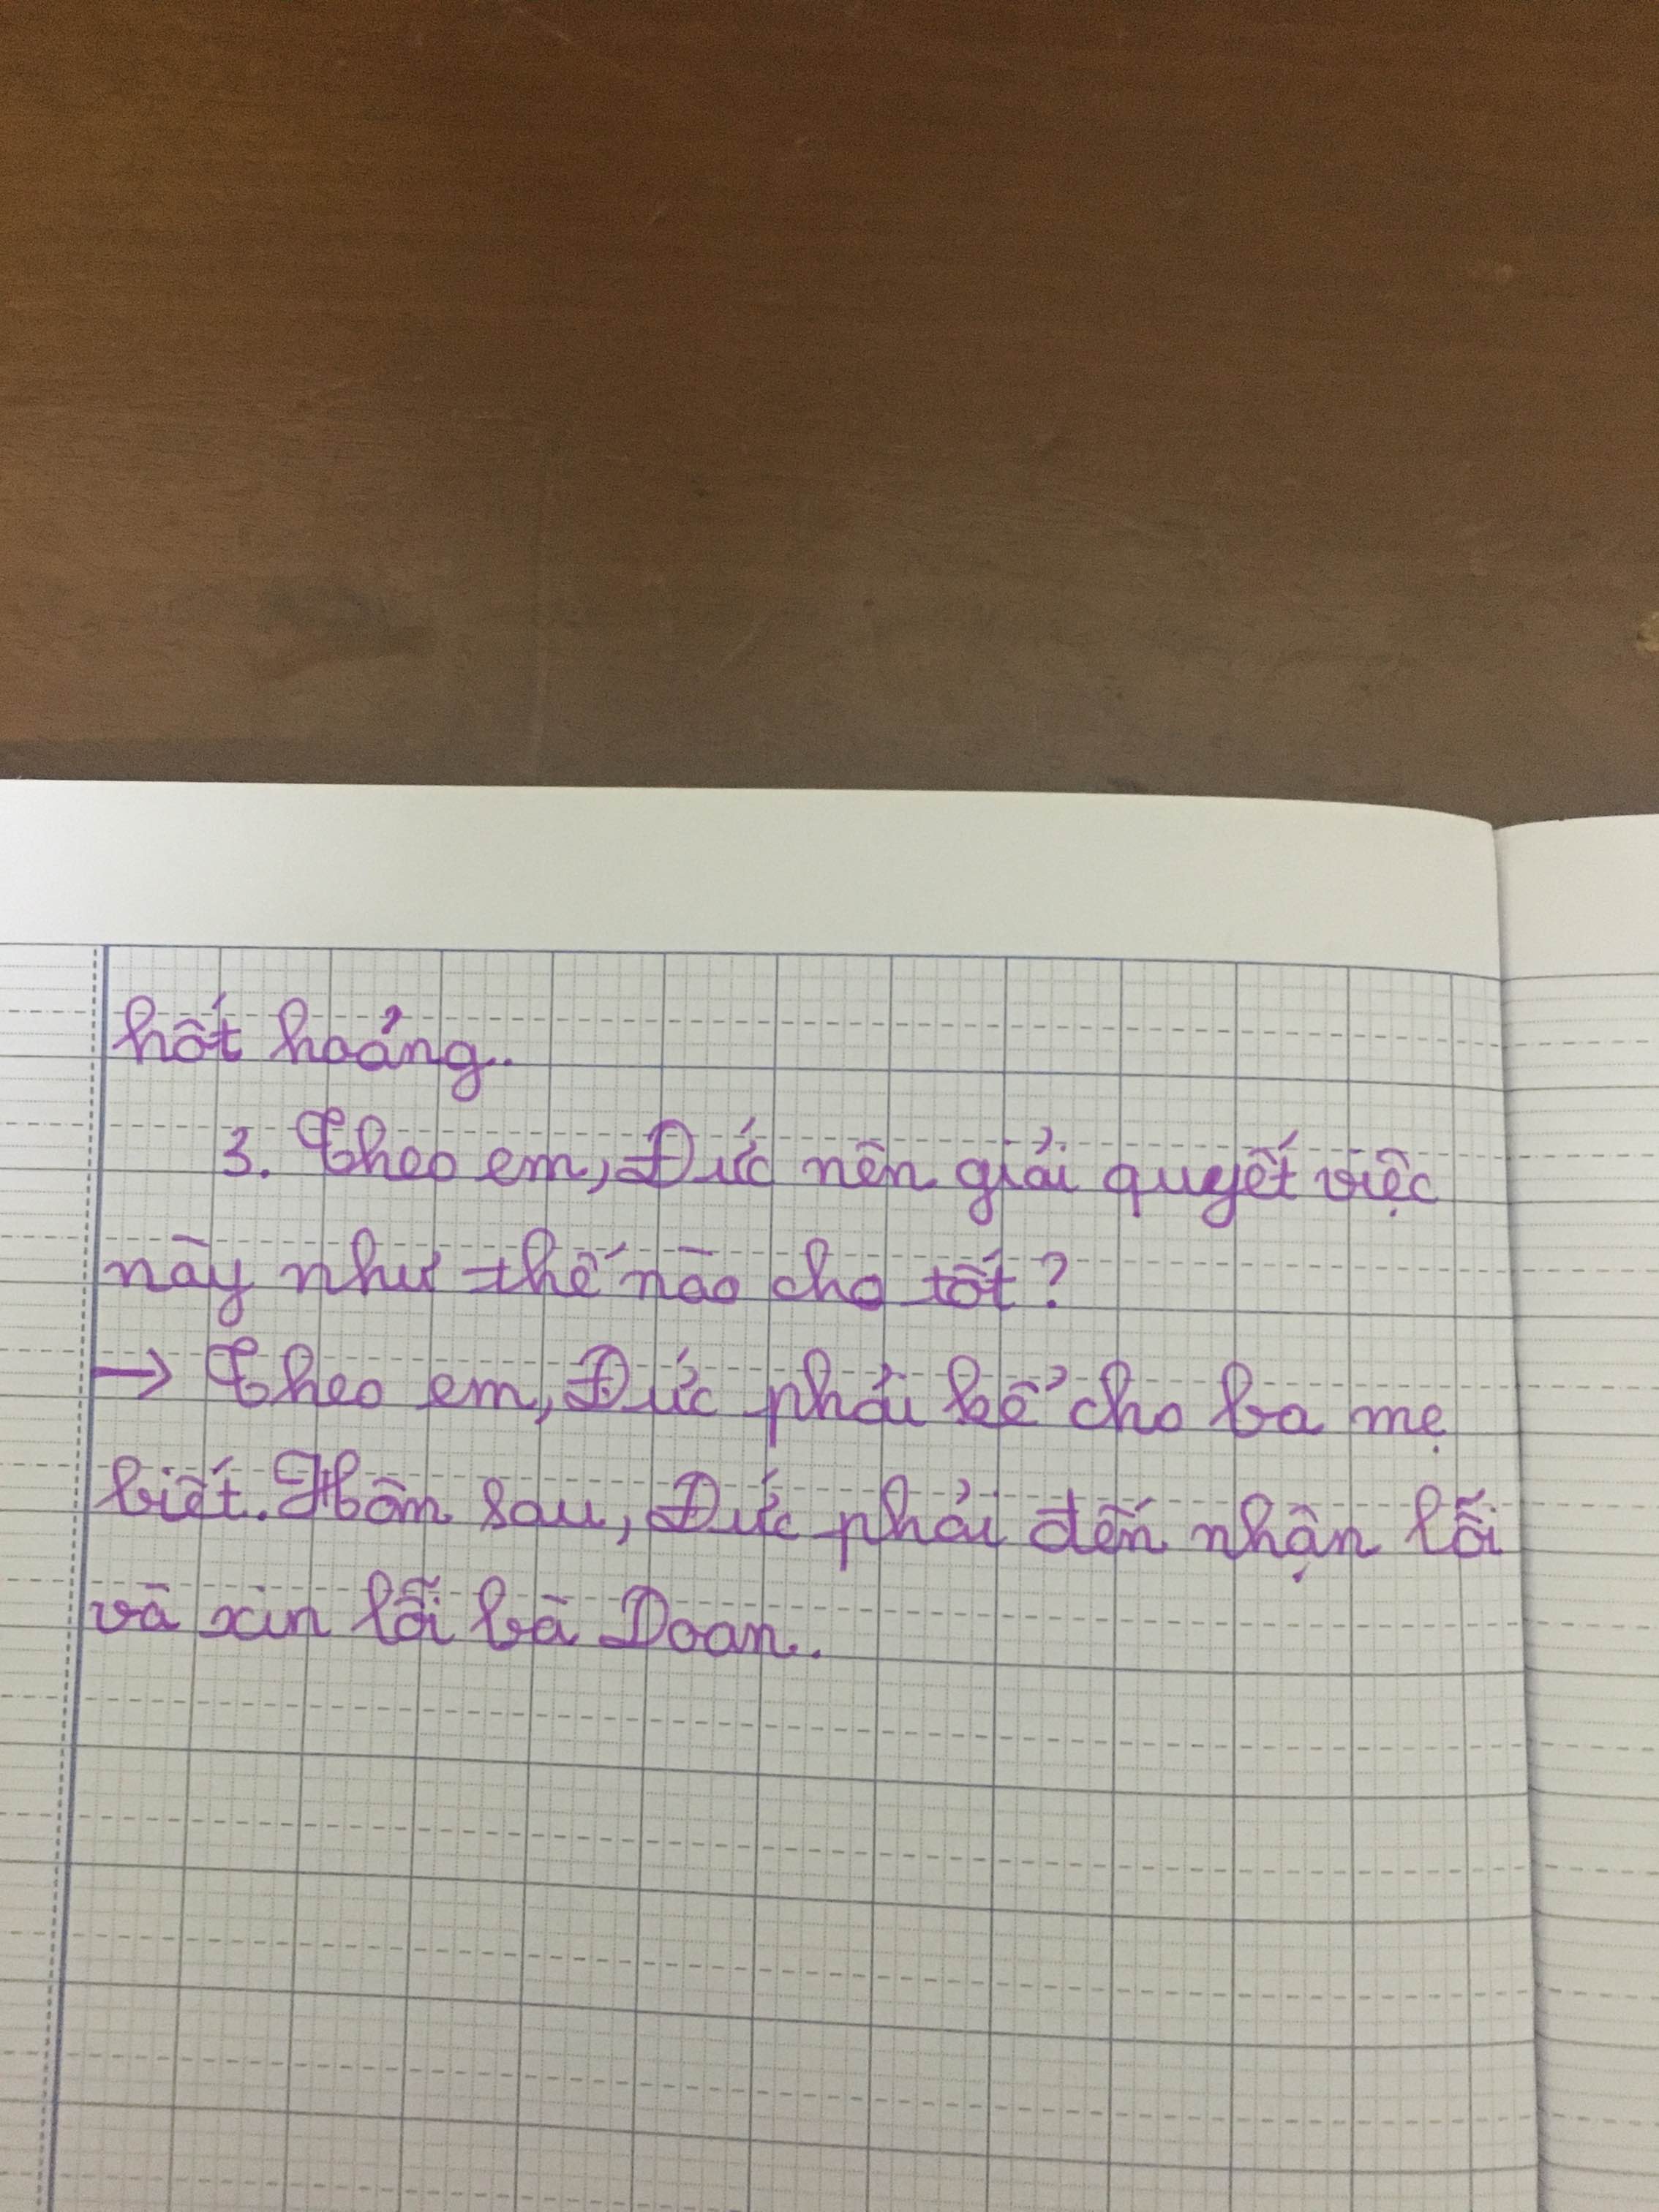 hốt hoảng.
3. Theo em, Đức nên giải quyết việc
này như thế nào cho tốt?
→ Theo em, Đức phải kể cho ba mẹ
biết. Hôm sau, Đức phải đến nhận lỗi
và xin lỗi bà Doan.